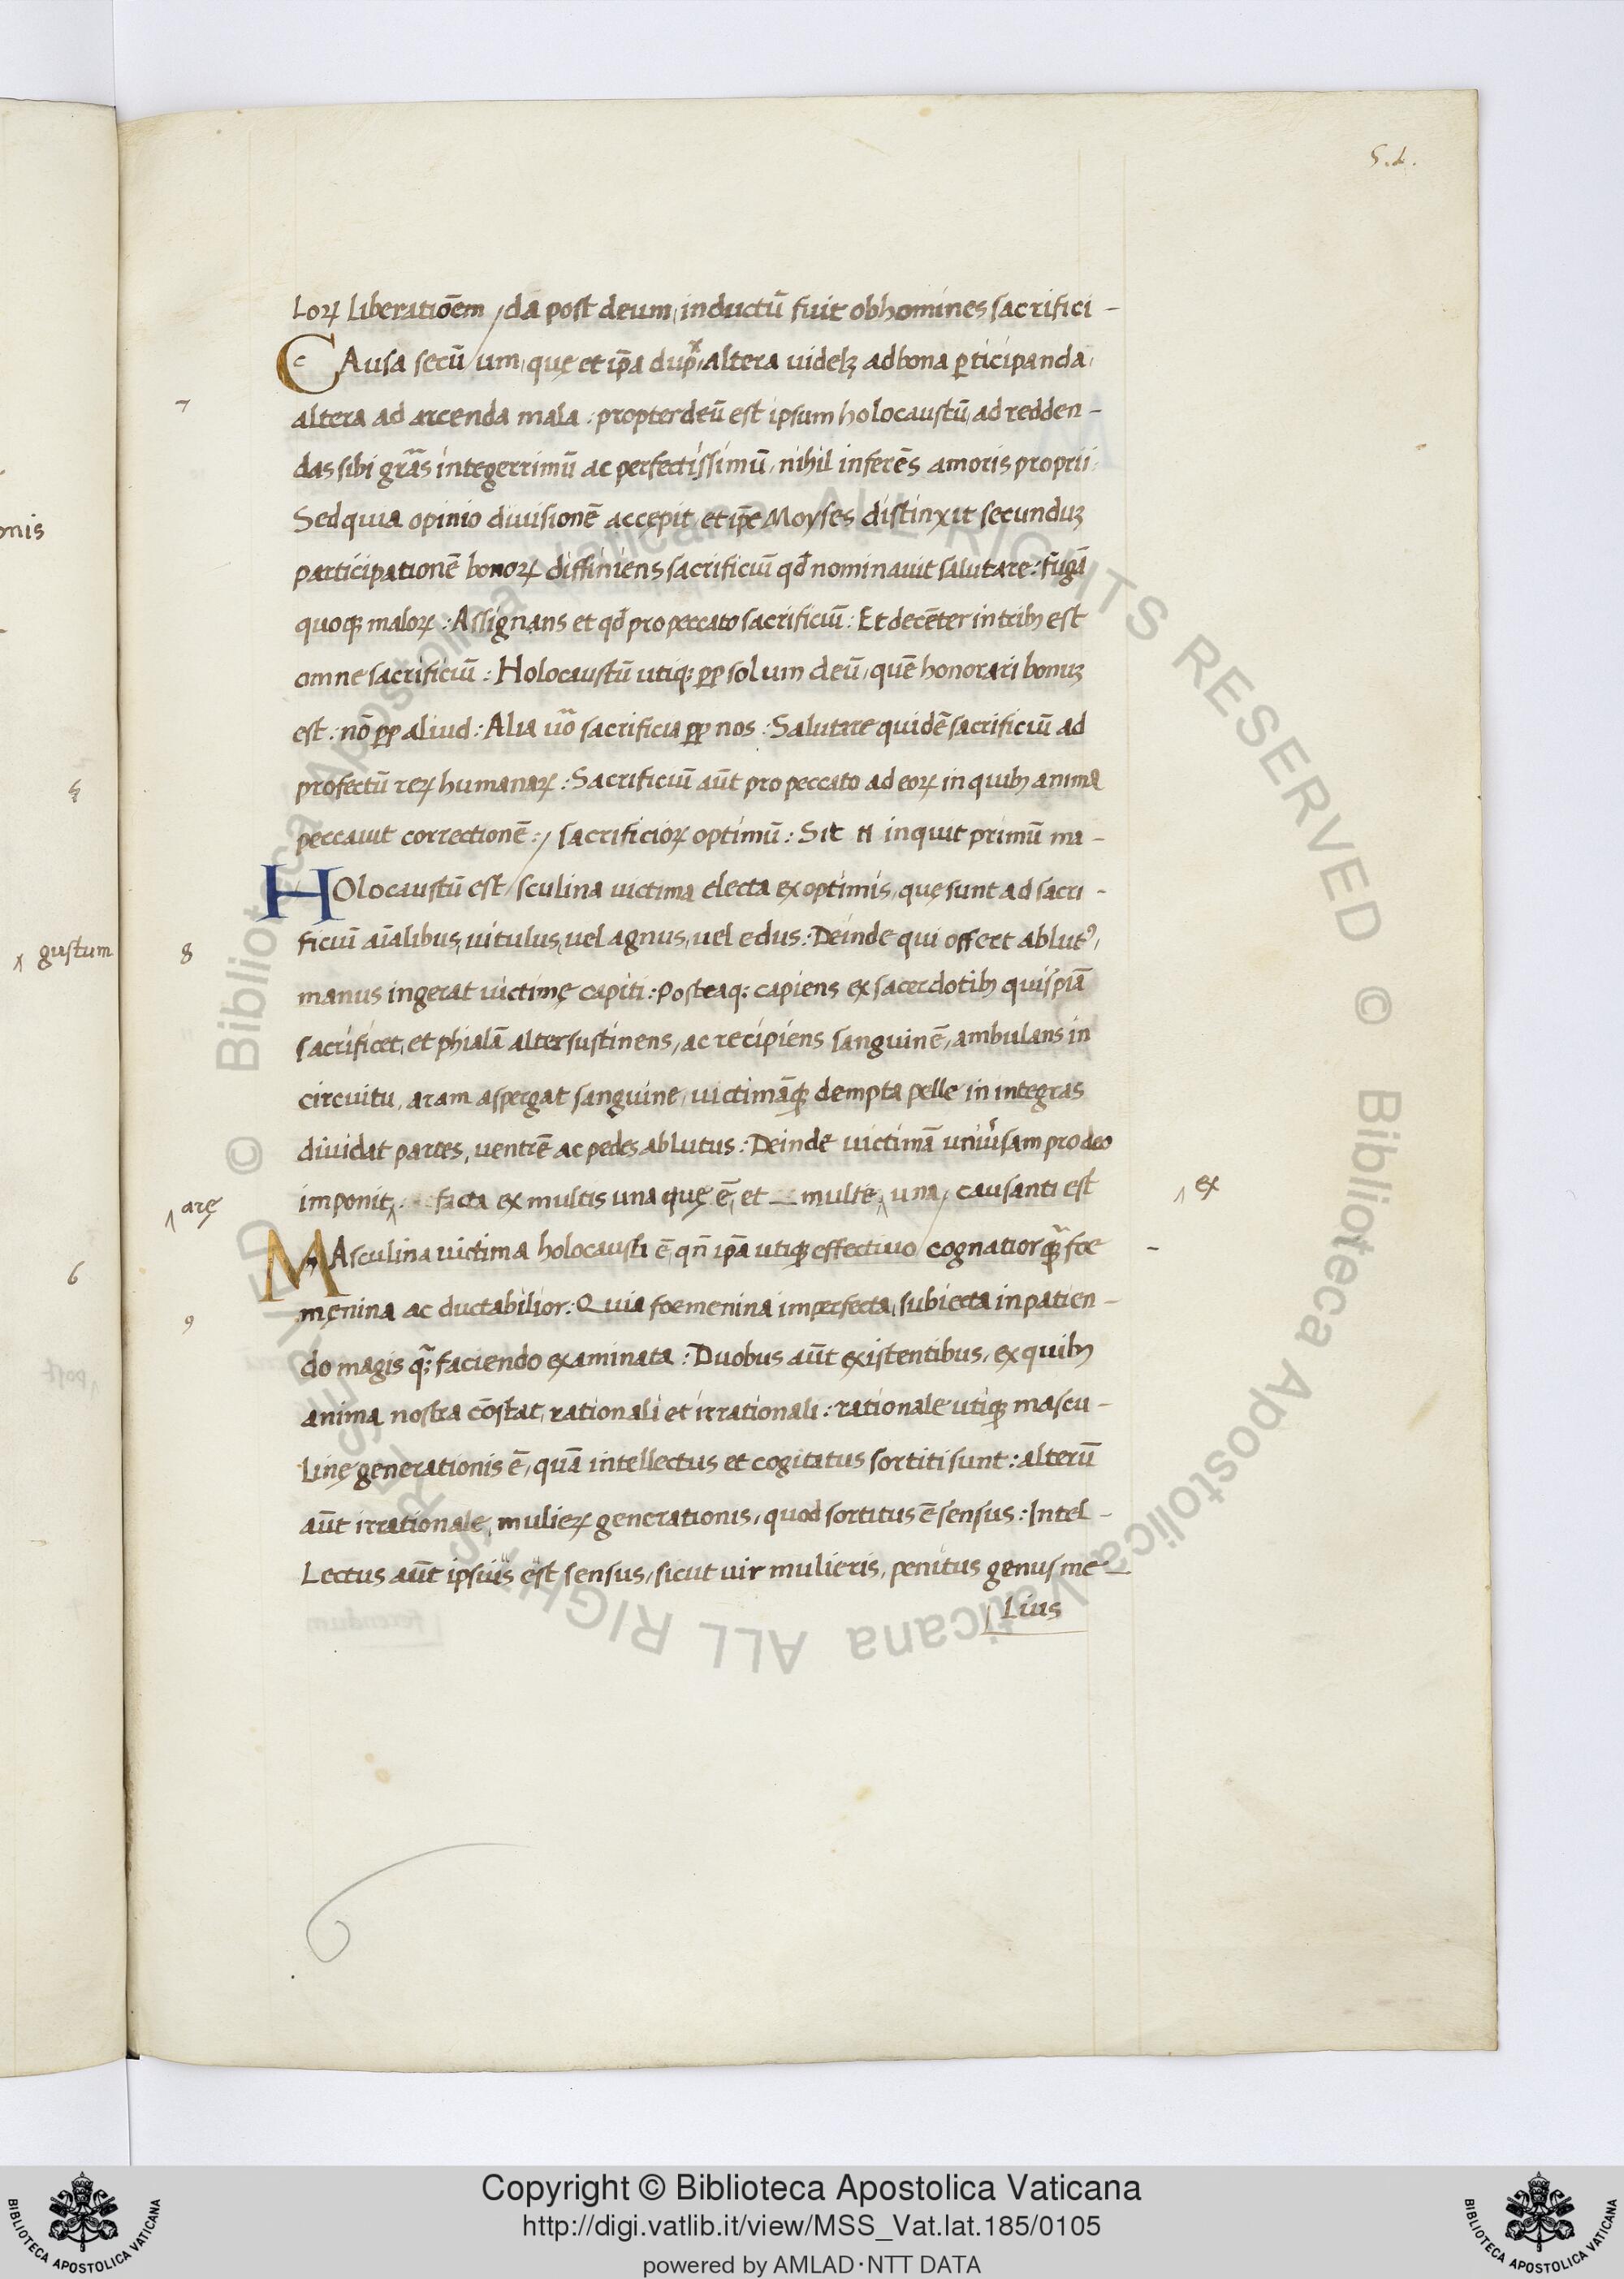 5.4.
Lorꝝ liberatiōem / dā post deum, inductū fuit ob homines sacrifici-
CAusa secū / um, quę et ip̄a dupx, altera uidelꝫ ad bona ꝑticipanda,
7
altera ad arcenda mala : propter deū est ipsum holocaustū, ad redden-
das sibi gr̄as integerrimū ac perfectissimū, nihil inferēs amoris proprii.
Sed quia opinio diuisionē accepit, et ip̄e Moyses distinxit secunduꝫ
participationē bonoꝝ diffiniens sacrificiū qd̄ nominauit salutare : fugā
quoqꝫ maloꝝ : Assignans et qd̄ pro peccato sacrificiū : Et decēter in tribꝫ est
omne sacrificiū : Holocaustū utiqꝫ ꝓp solum deū, quē honorari bonuꝫ
est : nō ꝓp aliud : Alia uō sacrificia ꝓp nos : Salutare quidē sacrificiū ad
profectū reꝝ humanaꝝ : Sacrificiū aūt pro peccato ad eoꝝ in quibꝫ anima
peccauit correctionē : / sacrificioꝝ optimū : Sit n̄ inquit primū ma-
HOlocaustū est / sculina uictima electa ex optimis, quę sunt ad sacri-
8
ficiū aīalibus, uitulus, uel agnus, uel edus : Deinde qui offert ablutꝰ,
manus ingerat uictimę capiti : Posteaqꝫ capiens ex sacerdotibꝫ quispiā
sacrificet, et phialā alter sustinens, ac recipiens sanguinē, ambulans in
circuitu, aram aspergat sanguine, uictimāqꝫ dempta pelle in integras
diuidat partes, uentrē ac pedes ablutus : Deinde uictimā uniūsam pro deo
^ arę
imponit^ facta ex multis una quę ē, et multe ^ una / causanti est
^ ex
MAsculina uictima holocausti ē, qn̄ ip̄a utiqꝫ effectiuo / cognatior qꝫ̄ foe
-
męnina ac ductabilior : Quia foemenina imperfecta, subiecta in patien-
9
do magis qꝫ̄ faciendo examinata : Duobus aūt existentibus, ex quibꝫ
anima nostra cōstat, rationali et irrationali : rationale utiqꝫ mascu-
linę generationis ē, quā intellectus et cogitatus sortiti sunt : alterū
aūt irrationale, mulieꝝ generationis, quod sortitus ē sensus : Intel-
lectus aūt ipsius est sensus, sicut uir mulieris, penitus genus me-
Lius
onis
5
^ gustum
6
© Biblioteca Apostolica Vaticana ALL RIGHTS RESERVED
© Biblioteca Apostolica Vaticana ALL RIGHTS RESERVED
BIBLIOTECA APOSTOLICA VATICANA
Copyright © Biblioteca Apostolica Vaticana
http://digi.vatlib.it/view/MSS_Vat.lat.185/0105
powered by AMLAD·NTT DATA
BIBLIOTECA APOSTOLICA VATICANA